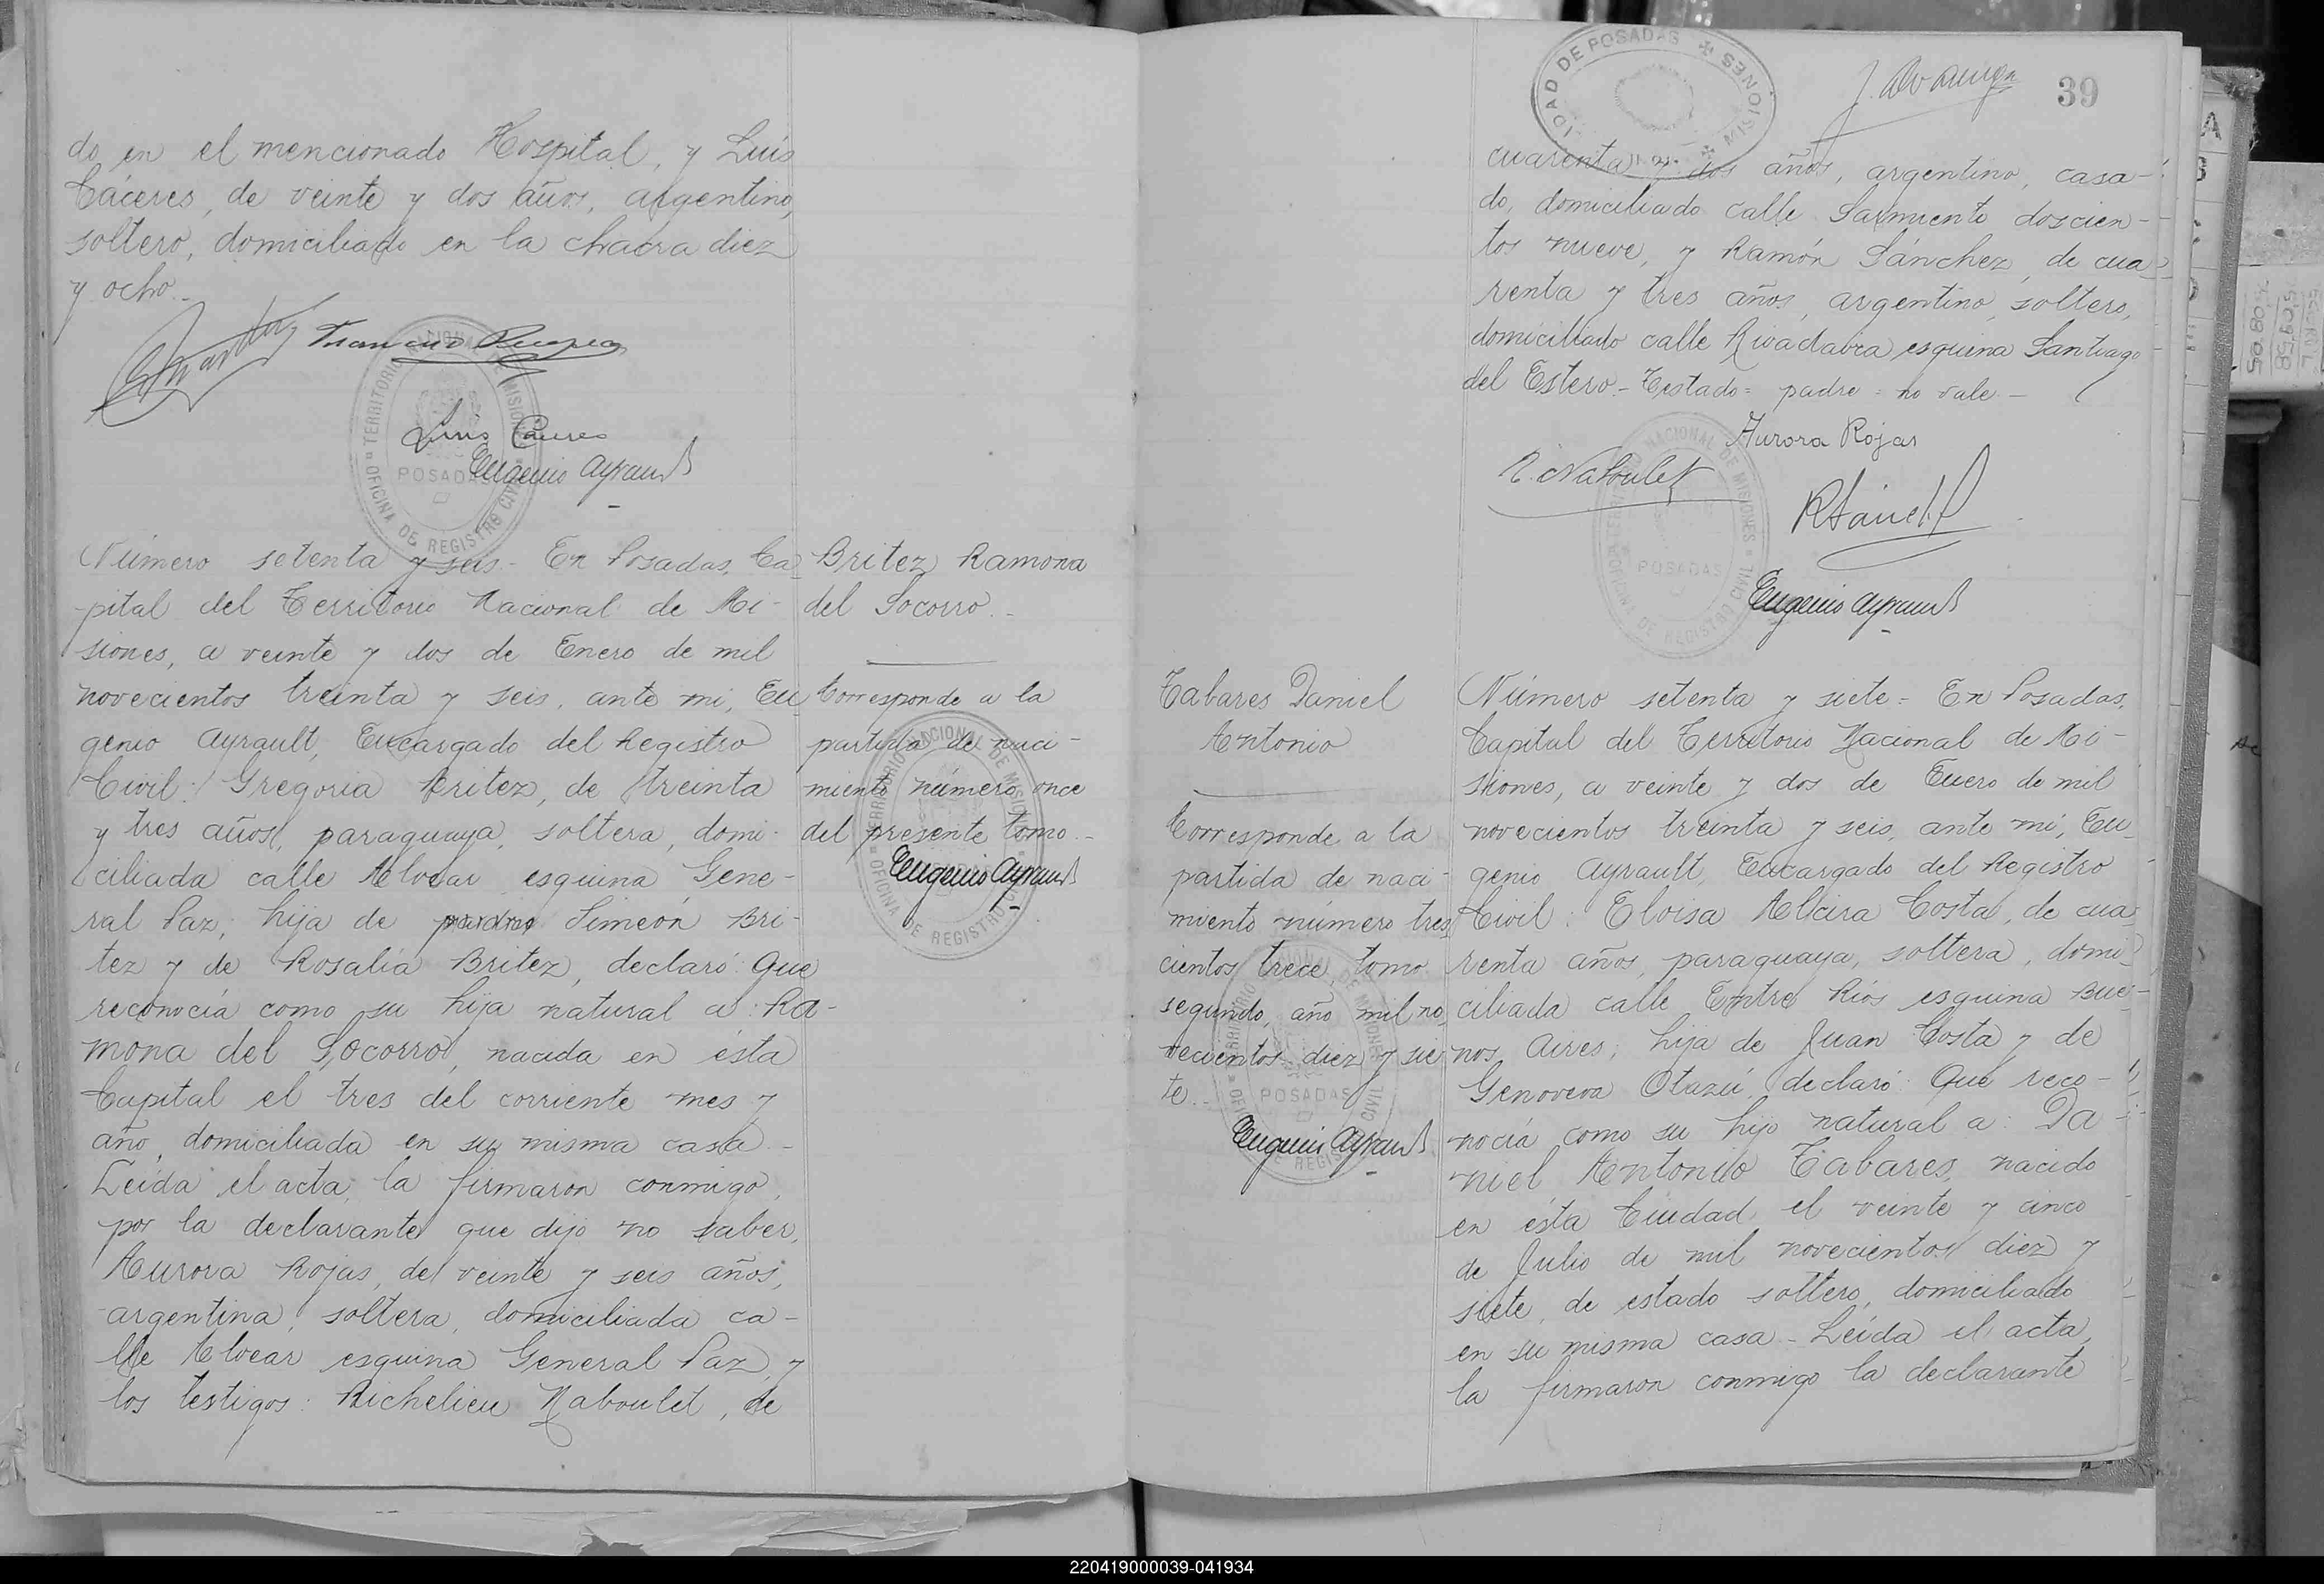 do en el mencionado Hospital, y Luis
Cáceres, de veinte y dos años, argentino,
soltero, domiciliado en la chacra diez
y ocho.-
Luis Caceres
Eugenio Ayrault
TERRITORIO NACIONAL DE MISIONES
POSADAS
OFICINA DE REGISTRO CIVIL
Número setenta y seis - En Posadas, Ca
pital del Territorio Nacional de Mi-
siones, a veinte y dos de Enero de mil
novecientos treinta y seis, ante mi, Eu
genio Ayrault, Encargado del Registro
Civil: Gregoria Britez, de treinta
y tres años, paraguaya, soltera, domi-
ciliada calle Alvear esquina Gene-
ral Paz, hija de padre Simeón Bri-
tez y de Rosalía Britez, declaró: Que
reconocía como su hija natural a: Ra-
mona del Socorro, nacida en ésta
Capital el tres del corriente mes y
año, domiciliada en su misma casa.-
Leída el acta, la firmaron conmigo,
por la declarante que dijo no saber,
Aurora Rojas, de veinte y seis años,
argentina, soltera, domiciliada ca-
lle Alvear esquina General Paz, y
los testigos: Richelieu Naboulet, de
Britez Ramona
del Socorro.-
Corresponde a la
partida de naci-
miento número once
del presente tomo.-
Eugenio Ayrault
TERRITORIO NACIONAL DE MISIONES
OFICINA DE REGISTRO CIVIL
DE POSADAS
MISIONES
39
cuarenta y dos años, argentino, casa-
do, domiciliado calle Sarmiento doscien-
tos nueve, y Ramón Sánchez, de cua-
renta y tres años, argentino, soltero,
domiciliado calle Rivadavia esquina Santiago
del Estero.- Testado= padre= no vale.-
Aurora Rojas
R. Naboulet
RSánchez
Eugenio Ayrault
NACIONAL DE MISIONES
POSADAS
Tabares Daniel
Antonio
Corresponde a la
partida de naci-
miento número tres
cientos trece, tomo
segundo, año mil no
vecientos diez y sie
te.-
Eugenio Ayrault
POSADAS
Número setenta y siete= En Posadas,
Capital del Territorio Nacional de Mi-
siones, a veinte y dos de Enero de mil
novecientos treinta y seis, ante mi, Eu
genio Ayrault, Encargado del Registro
Civil: Eloisa Alcira Costa, de cua
renta años, paraguaya, soltera, domi-
ciliada calle Entre Ríos esquina Bue-
nos Aires, hija de Juan Costa y de
Genoveva Otazú, declaró: Que reco-
nocía como su hijo natural a: Da
niel Antonio Tabares, nacido
en ésta Ciudad el veinte y cinco
de Julio de mil novecientos diez y
siete, de estado soltero, domiciliado
en su misma casa.- Leída el acta,
la firmaron conmigo la declarante
220419000039-041934